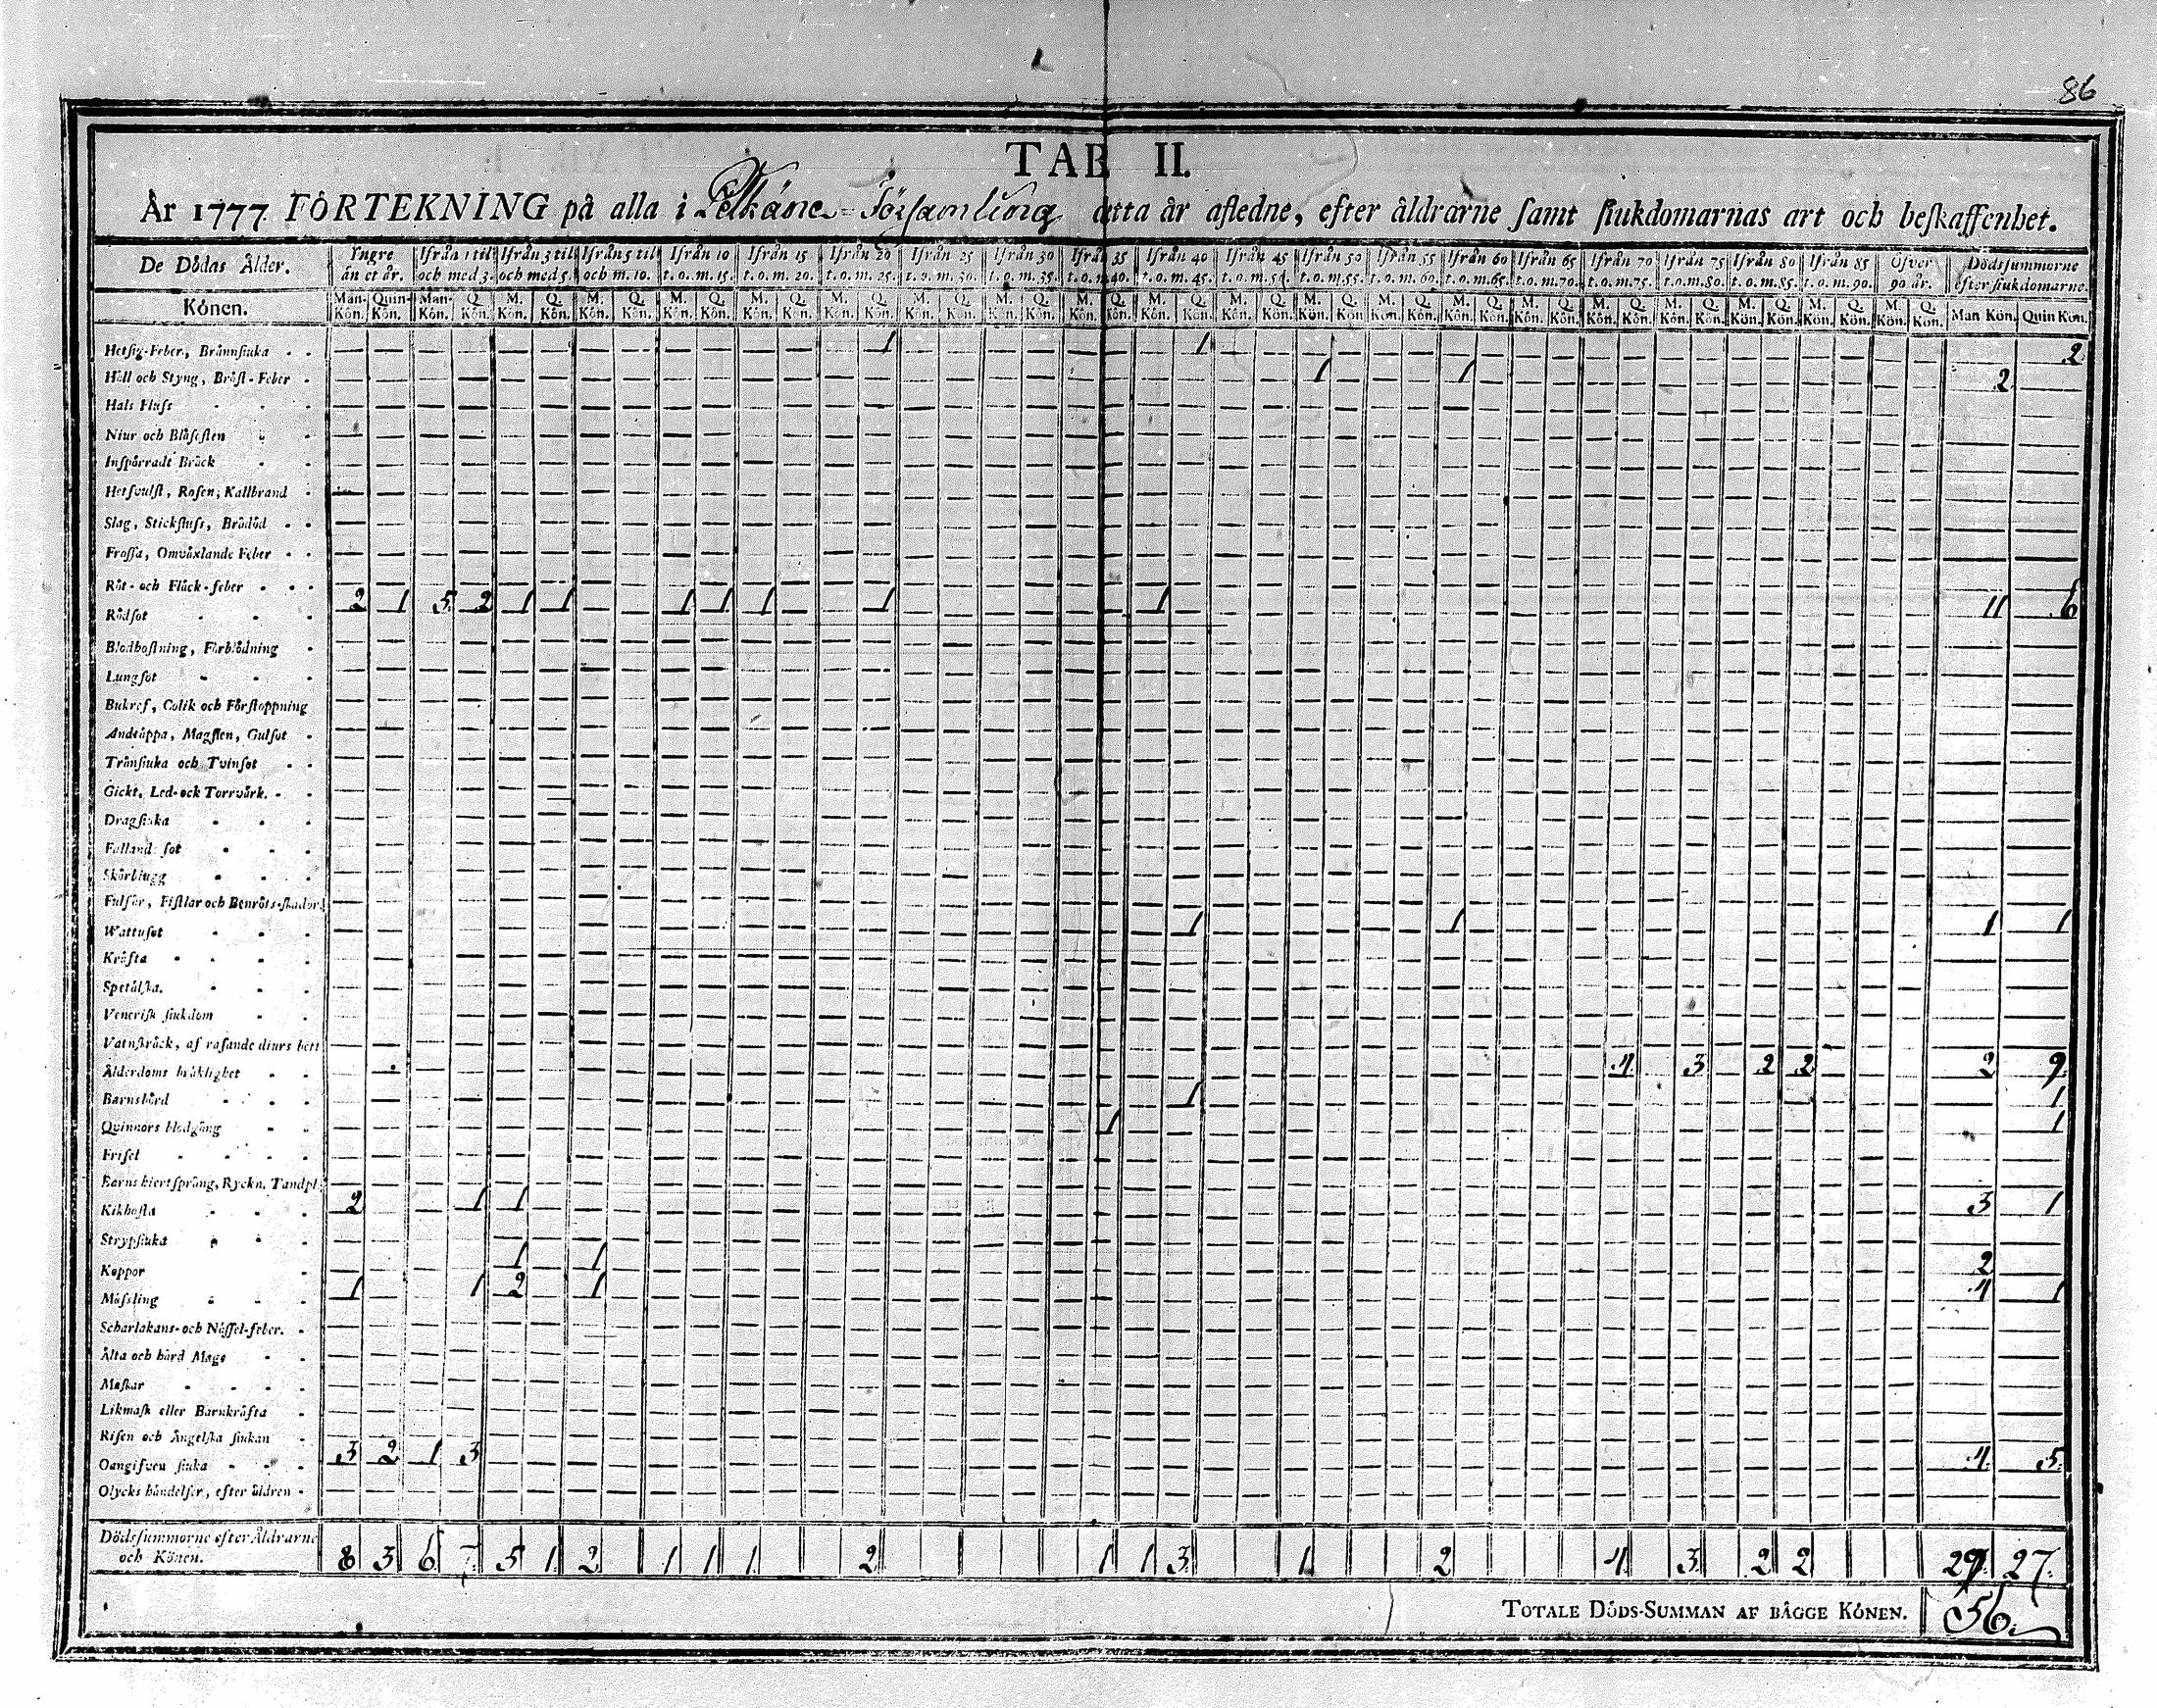 86
TAB II.
År 1777 FÖRTEKNING på alla i Pelkäne Församling detta år afledne, efter åldrarne samt siukdomarnas art och beskaffenhet.
De Dödas Ålder. Yngre än et år. Ifrån 1 til och med 3. Ifrån 3 til och med 5. Ifrån 5 til och m. 10. Ifrån 10 t. o. m. 15. Ifrån 15 t. o. m. 20. Ifrån 20 t. o. m. 25. Ifrån 25 t. o. m. 30. Ifrån 30 t. o. m. 35. Ifrån 35 t. o. m. 40. Ifrån 40 t. o. m. 45. Ifrån 45 t. o. m. Ifrån 50 t. o. m. 55. Ifrån 55 t. o. m. 60. Ifrån 60 t. o. m. 65. Ifrån 65 t. o. m. 70. Ifrån 70 t. o. m. 75. Ifrån 75 t. o. m. 80. Ifrån 80 t. o. m. 85. Ifrån 85 t. o. m. 90. Öfver 90 år. Dödssummorne efter siukdomarne.
Könen. Man-Kön. Quin-Kön. Man-Kön. Q. Kön. M. Kön. Q. Kön. M. Kön. Q. Kön. M. Kön. Q. Kön. M. Kön. Q. Kön. M. Kön. Q. Kön. M. Kön. Q. Kön. M. Kön. Q. Kön. M. Kön. Q. Kön. M. Kön. Q. Kön. M. Kön. Q. Kön. M. Kön. Q. Kön. M. Kön. Q. Kön. M. Kön. Q. Kön. M. Kön. Q. Kön. M. Kön. Q. Kön. M. Kön. Q. Kön. M. Kön. Q. Kön. M. Kön. Q. Kön. M. Kön. Q. Kön. Man Kön. Quin Kön.
Hetsig-Feber, Brännsiuka 1 1 2
Håll och Styng, Bröst-Feber 1 1 2
Hals Fluss
Niur och Blåsesten
Inspärradt Bråck
Hetsvulst, Rosen, Kallbrand
Slag, Stickfluss, Brådöd
Frossa, Omväxlande Feber
Röt- och Fläck-feber
Rödsot 2 1 5 2 1 1 1 1 1 1 1 11 6
Blodhostning, Förblödning
Lungsot
Bukref, Colik och Förstoppning
Andtäppa, Magsten, Gulsot
Trånsiuka och Tvinsot
Gickt, Led-och Torrvärk.
Dragsiuka
Falland sot
Skörbiugg
Fulsår, Fistlar och Benröts-skador
Wattusot 1 1 1 1
Kräfta
Spetälska.
Venerisk siukdom
Vatnskräck, af rasande diurs bett
Ålderdoms bräklighet 4 3 2 2 2 9
Barnsbörd 1 1
Quinnors blodgång 1 1
Frisel
Barns hiertsprång, Ryckn. Tandpl.
Kikhosta 2 1 1 3 1
Strypsiuka
Koppor 1 1 2
Mässling 1 1 2 1 4 1
Scharlakans-och Nässel-feber.
Ålta och hård Mage
Maskar
Likmask eller Barnkräfta
Risen och Ängelska siukan
Oangifven siuka 3 2 1 3 4 5
Olycks händelser, efter åldren
Dödssummorne efter Åldrarne
och Könen. 8 3 6 7 5 1 2 1 1 1 2 1 1 3 1 2 4 3 2 2 29 27
TOTALE DÖDS-SUMMAN AF BÄGGE KÖNEN. 56.